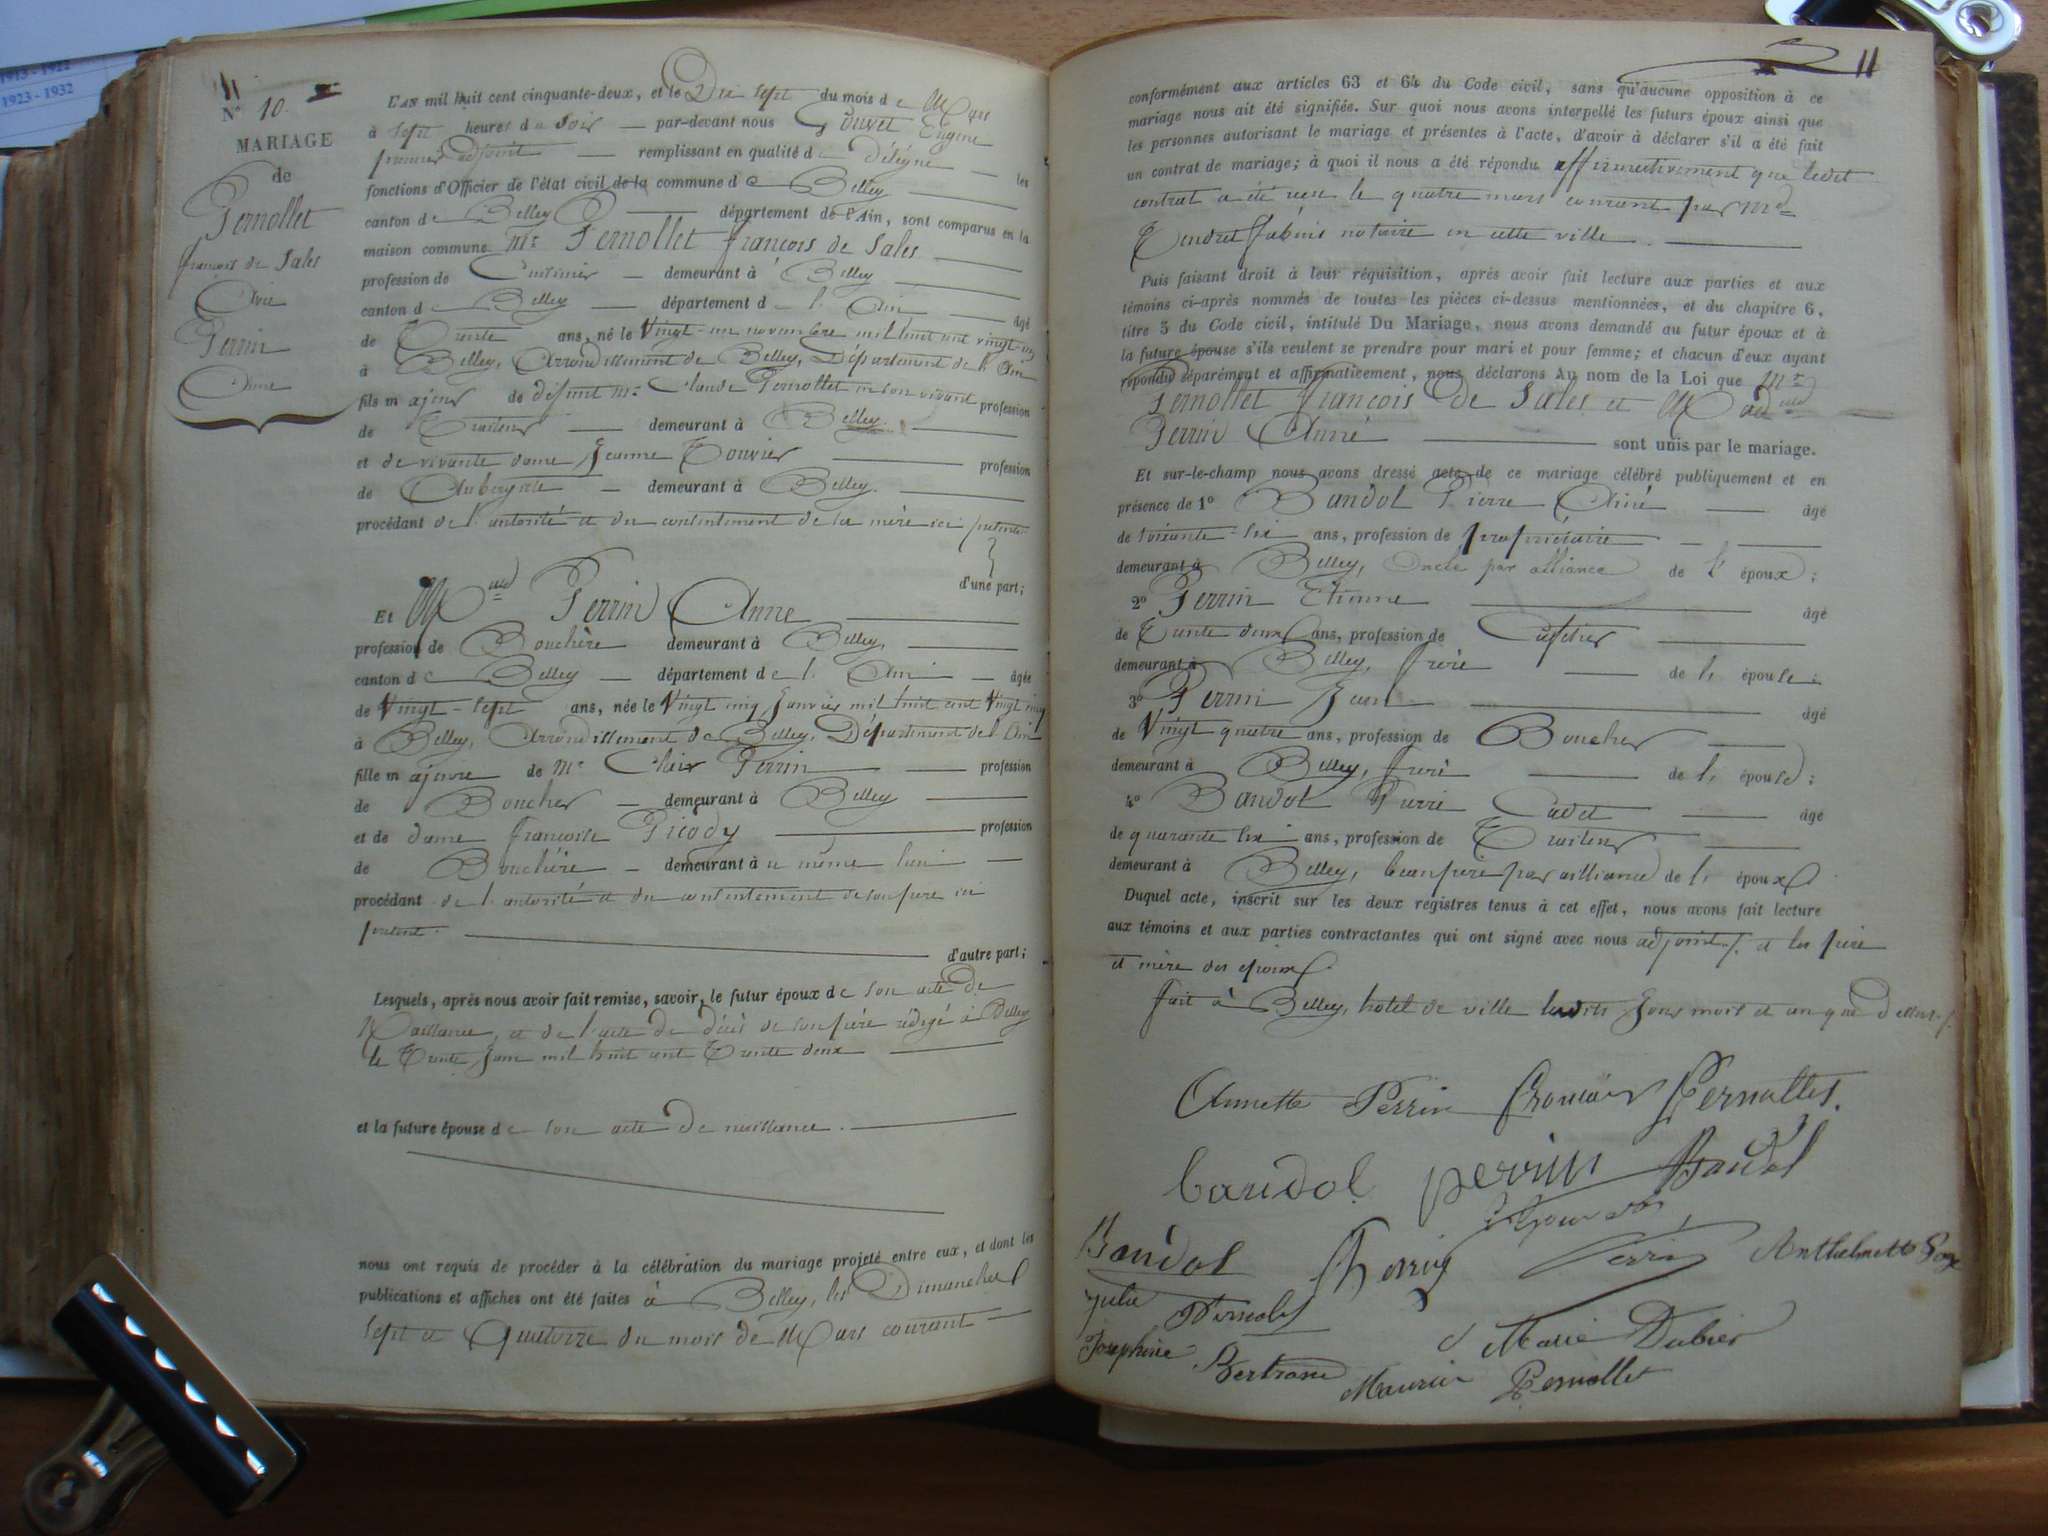 1913 - 1922
1923 - 1932
11
N° 10.
MARIAGE
de
Pernollet
françois de Sales
Avec
Perrin
Anne
L'AN mil huit cent cinquante-deux, et le Dix sept du mois de Mars
à sept heures du Soir par-devant nous Gouvet Eugène
premier adjoint remplissant en qualité de délégué les
fonctions d'Officier de l'état civil de la commune de Belley
canton de Belley département de l'Ain, sont comparus en la
maison commune Mr Pernollet françois de Sales
profession de Cuisinier demeurant à Belley
canton de Belley département de l'Ain âgé
de Trente ans, né le Vingt-un novembre mil huit cent vingt-un
à Belley, Arrondissement de Belley, Département de l'Ain
fils majeur de défunt Mr Claude Pernollet en son vivant profession
de Traiteur demeurant à Belley.
et de vivante dame Jeanne Touvier profession
de Aubergiste demeurant à Belley.
procédant de l'autorité et du consentement de sa mère ici présente
d'une part;
Et Melle Perrin Anne
profession de Bouchère demeurant à Belley,
canton de Belley département de l'Ain âgée
de Vingt-sept ans, née le Vingt cinq Janvier mil huit cent Vingt cinq
à Belley, Arrondissement de Belley, Département de l'Ain
fille majeure de Mr Clair Perrin profession
de Boucher demeurant à Belley
et de dame françoise Picody profession
de Bouchère demeurant au même lieu
procédant de l'autorité et du consentement de son père ici
présent.
d'autre part;
Lesquels, après nous avoir fait remise, savoir, le futur époux de son acte de
Naissance, et de l'acte de décès de son père rédigé à Belley
le Trente Juin mil huit cent Trente deux
et la future épouse de son acte de naissance.
nous ont requis de procéder à la célébration du mariage projeté entre eux, et dont les
publications et affiches ont été faites à Belley, les Dimanches
sept et Quatorze du mois de Mars courant
11
conformément aux articles 63 et 64 du Code civil, sans qu'aucune opposition à ce
mariage nous ait été signifiée. Sur quoi nous avons interpellé les futurs époux ainsi que
les personnes autorisant le mariage et présentes à l'acte, d'avoir à déclarer s'il a été fait
un contrat de mariage; à quoi il nous a été répondu affirmativement que ledit
contrat a été reçu le quatre mars courant par
notaire en cette ville.
Puis faisant droit à leur réquisition, après avoir fait lecture aux parties et aux
témoins ci-après nommés de toutes les pièces ci-dessus mentionnées, et du chapitre 6,
titre 5 du Code civil, intitulé Du Mariage, nous avons demandé au futur époux et à
la future épouse s'ils veulent se prendre pour mari et pour femme; et chacun d'eux ayant
répondu séparément et affirmativement, nous déclarons Au nom de la Loi que Mr
Pernollet françois de Sales et Madelle
Perrin Anne sont unis par le mariage.
Et sur-le-champ nous avons dressé acte de ce mariage célébré publiquement et en
présence de 1° Baudol Pierre Aimé âgé
de soixante-six ans, profession de propriétaire
demeurant à Belley, Oncle par alliance de l'époux;
2° Perrin Etienne âgé
de Trente deux ans, profession de Cafetier
demeurant à Belley, frère de l'épouse;
3° Perrin Jean âgé
de Vingt quatre ans, profession de Boucher
demeurant à Belley, frère de l'épouse;
4° Baudol Pierre Cadet âgé
de quarante six ans, profession de Traiteur
demeurant à Belley, beau père par alliance de l'époux.
Duquel acte, inscrit sur les deux registres tenus à cet effet, nous avons fait lecture
aux témoins et aux parties contractantes qui ont signé avec nous adjoint, et les père
et mère des époux.
fait à Belley, hôtel de ville lesdits Jour mois et an que Dessus.
Annette Perrin François Pernollet.
baudol perrin Baudol
Baudol Perrin Anthelmette
Julie Pernolet Marie Dubier
Josephine Bertrand Maurice Pernollet